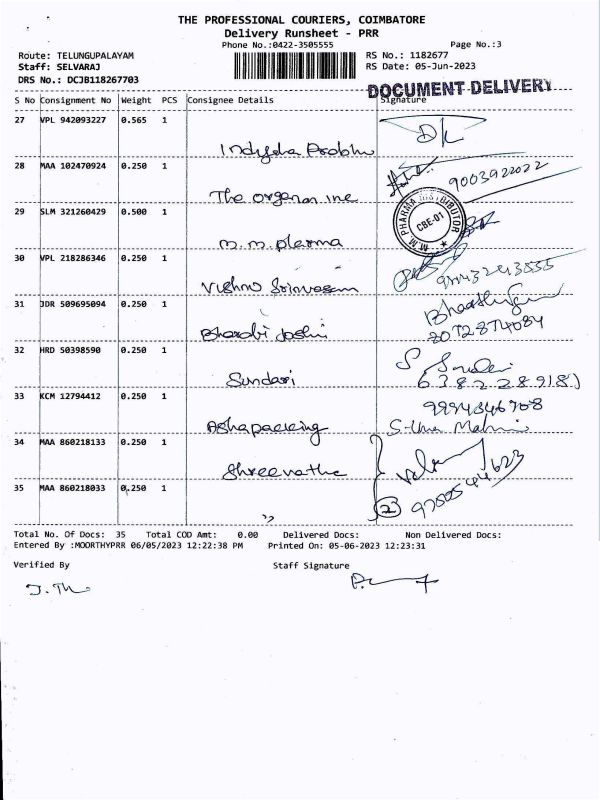 THE PROFESSIONAL COURIERS, COIMBATORE
Delivery Runsheet - PRR
Phone No.:0422-3505555 Page No.:3
Route: TELUNGUPALAYAM RS No.: 1182677
Staff: SELVARAJ RS Date: 05-Jun-2023
DRS No.: DCJB118267703
DOCUMENT DELIVERY
S No Consignment No Weight PCS Consignee Details Signature
27 VPL 942093227 0.565 1
28 MAA 102470924 0.250 1
9003922022
The organon inc
29 SLM 321260429 0.500 1
M.M. PHARMA DISTRIBUTOR CBE-01
m.m. pharma
30 VPL 218286346 0.250 1
Vishnu Srinivasan
31 JDR 509695094 0.250 1
Bharathi Joshi
8072874084
32 HRD 50398590 0.250 1
Sundari
33 KCM 12794412 0.250 1
9994346708
Asha packing
34 MAA 860218133 0.250 1
Shreevatha
35 MAA 860218033 0.250 1
2
"
Total No. Of Docs: 35 Total COD Amt: 0.00 Delivered Docs: Non Delivered Docs:
Entered By :MOORTHYPRR 06/05/2023 12:22:38 PM Printed On: 05-06-2023 12:23:31
Verified By Staff Signature